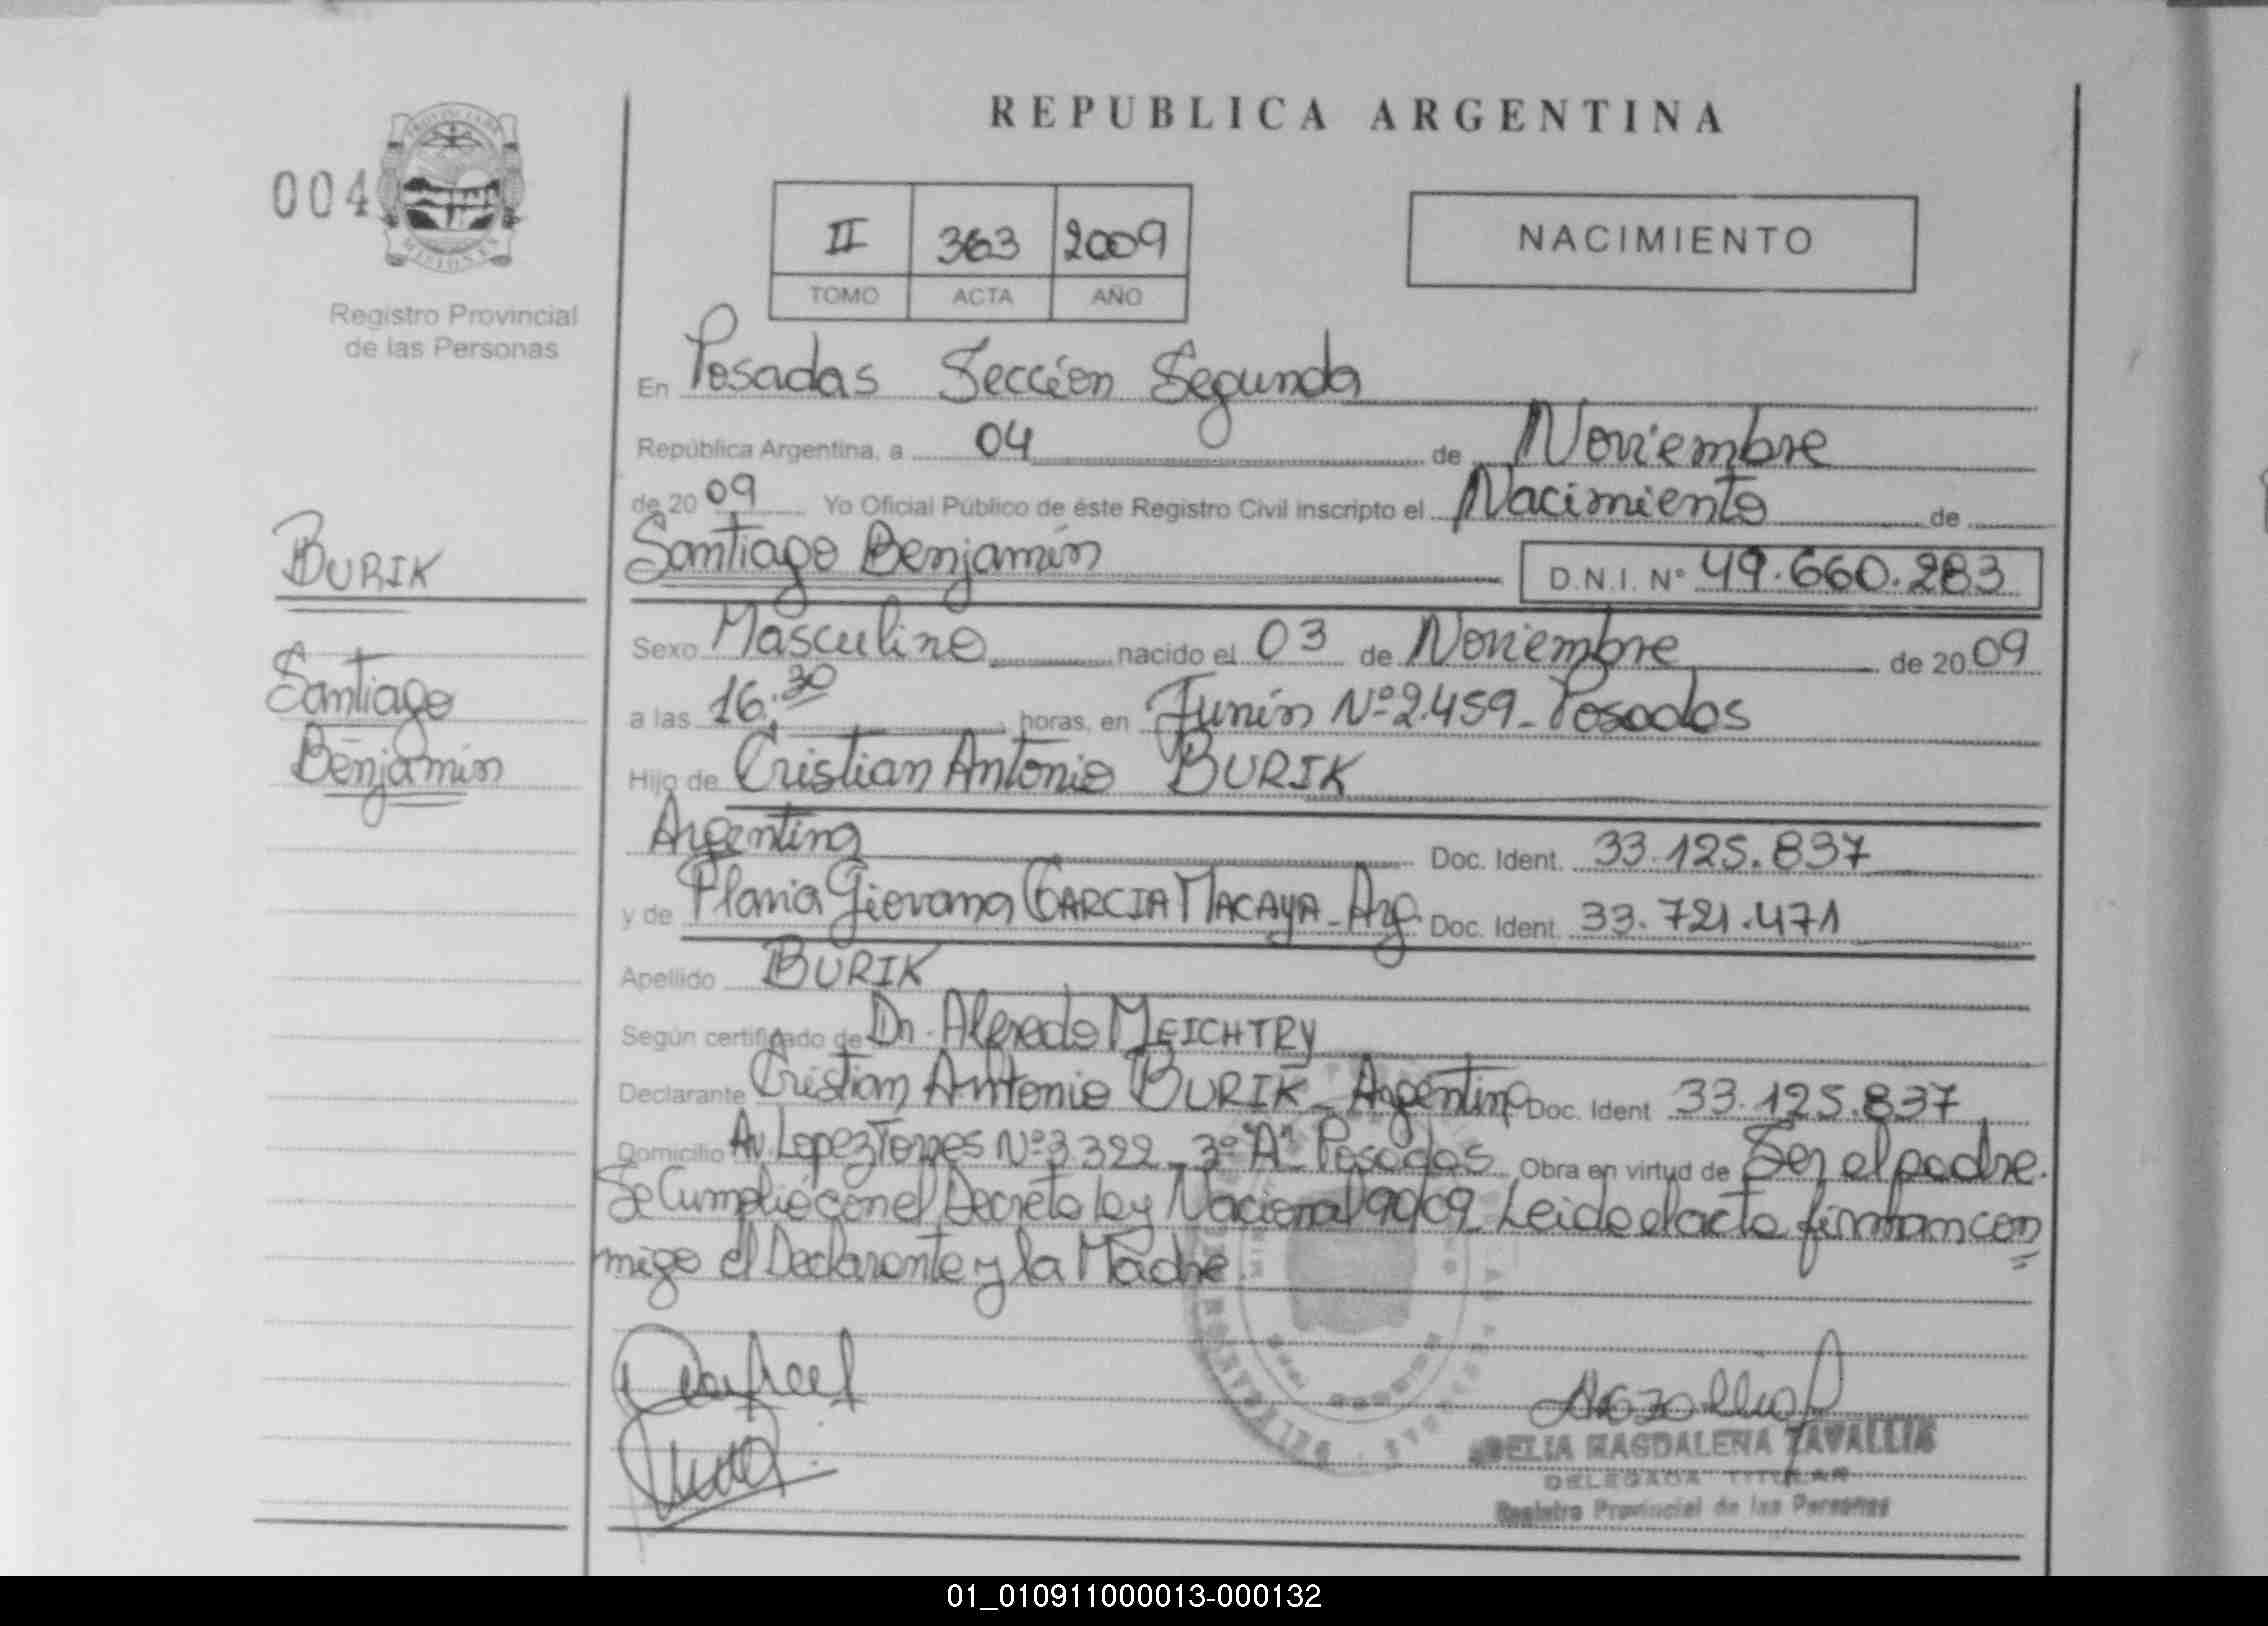 REPUBLICA ARGENTINA
004
PROVINCIA DE
MISIONES
Registro Provincial
de las Personas
II 363 2009
TOMO ACTA AÑO
NACIMIENTO
En Posadas Sección Segunda
República Argentina, a 04 de Noviembre
de 2009 Yo Oficial Público de éste Registro Civil inscripto el Nacimiento de
Santiago Benjamín D.N.I. N° 49.660.283
BURIK
Santiago
Benjamín
Sexo Masculino nacido el 03 de Noviembre de 2009
a las 16:30 horas, en Junín Nº 2.459 - Posadas
Hijo de Cristian Antonio BURIK
Argentina Doc. Ident. 33.125.837
y de Flavia Giovana GARCIA MACAYA - Arg. Doc. Ident. 33.721.471
Apellido BURIK
Según certificado de Dr. Alfredo MEICHTRY
Declarante Cristian Antonio BURIK - Argentino Doc. Ident 33.125.837
Domicilio Av. Lopez Torres Nº 3322 - 3º "A" Posadas Obra en virtud de Ser el padre.
Se Cumplió con el Decreto ley Nacional 90/09 Leido el acta firman con
migo el Declarante y la Madre.
DELIA MAGDALENA ZAVALLIA
DELEGADA TITULAR
Registro Provincial de las Personas
01_010911000013-000132